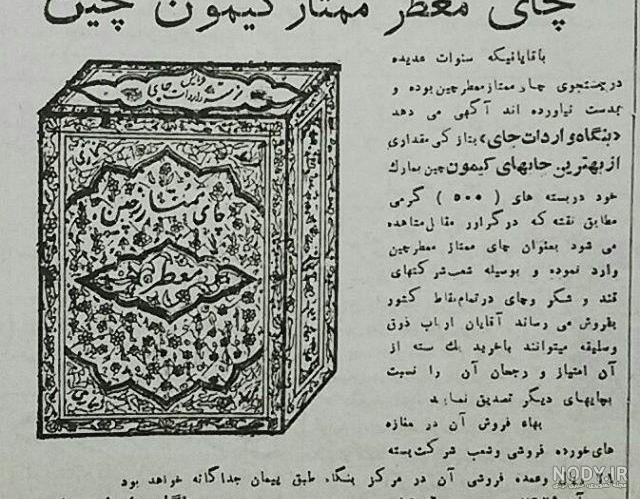 چای معطر ممتاز کیمون چین
باقایانیکه سنوات عدیده
درجستجوی چای ممتاز معطر چین بوده و
بدست نیاورده اند آگهی می دهد
«بنگاه واردات چای» بتازگی مقداری
از بهترین چایهای کیمون چین بمارک
خود دربسته های (۵۰۰) گرمی
مطابق نقشه که در گراور مقابل مشاهده
می شود بعنوان چای ممتاز معطر چین
وارد نموده و بوسیله شعب شرکتهای
قند و شکر و چای در تمام نقاط کشور
بفروش می رساند آقایان ارباب ذوق
وسلیقه میتوانند باخرید یک بسته از
آن امتیاز و رجحان آن را نسبت
بچایهای دیگر تصدیق نمایند
بهاء فروش آن در مغازه
های خورده فروشی وشعب شرکت بسته
وعمده فروشی آن در مرکز بنگاه طبق پیمان جداگانه خواهد بود
واردات چای
چای ممتاز چین
معطر
NODY.IR